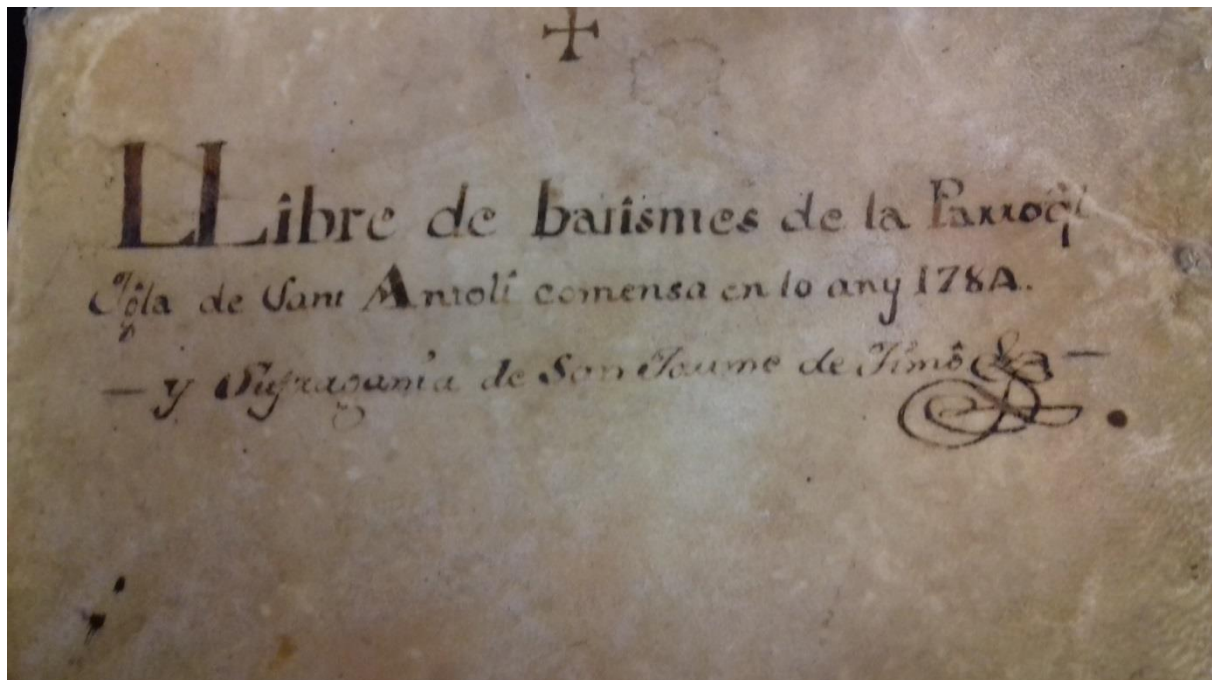 LLibre de batismes de la Parroql
Igla de Sant Antolí comensa en lo any 1784.
— y Sufragania de San Jaume de Timó &a —